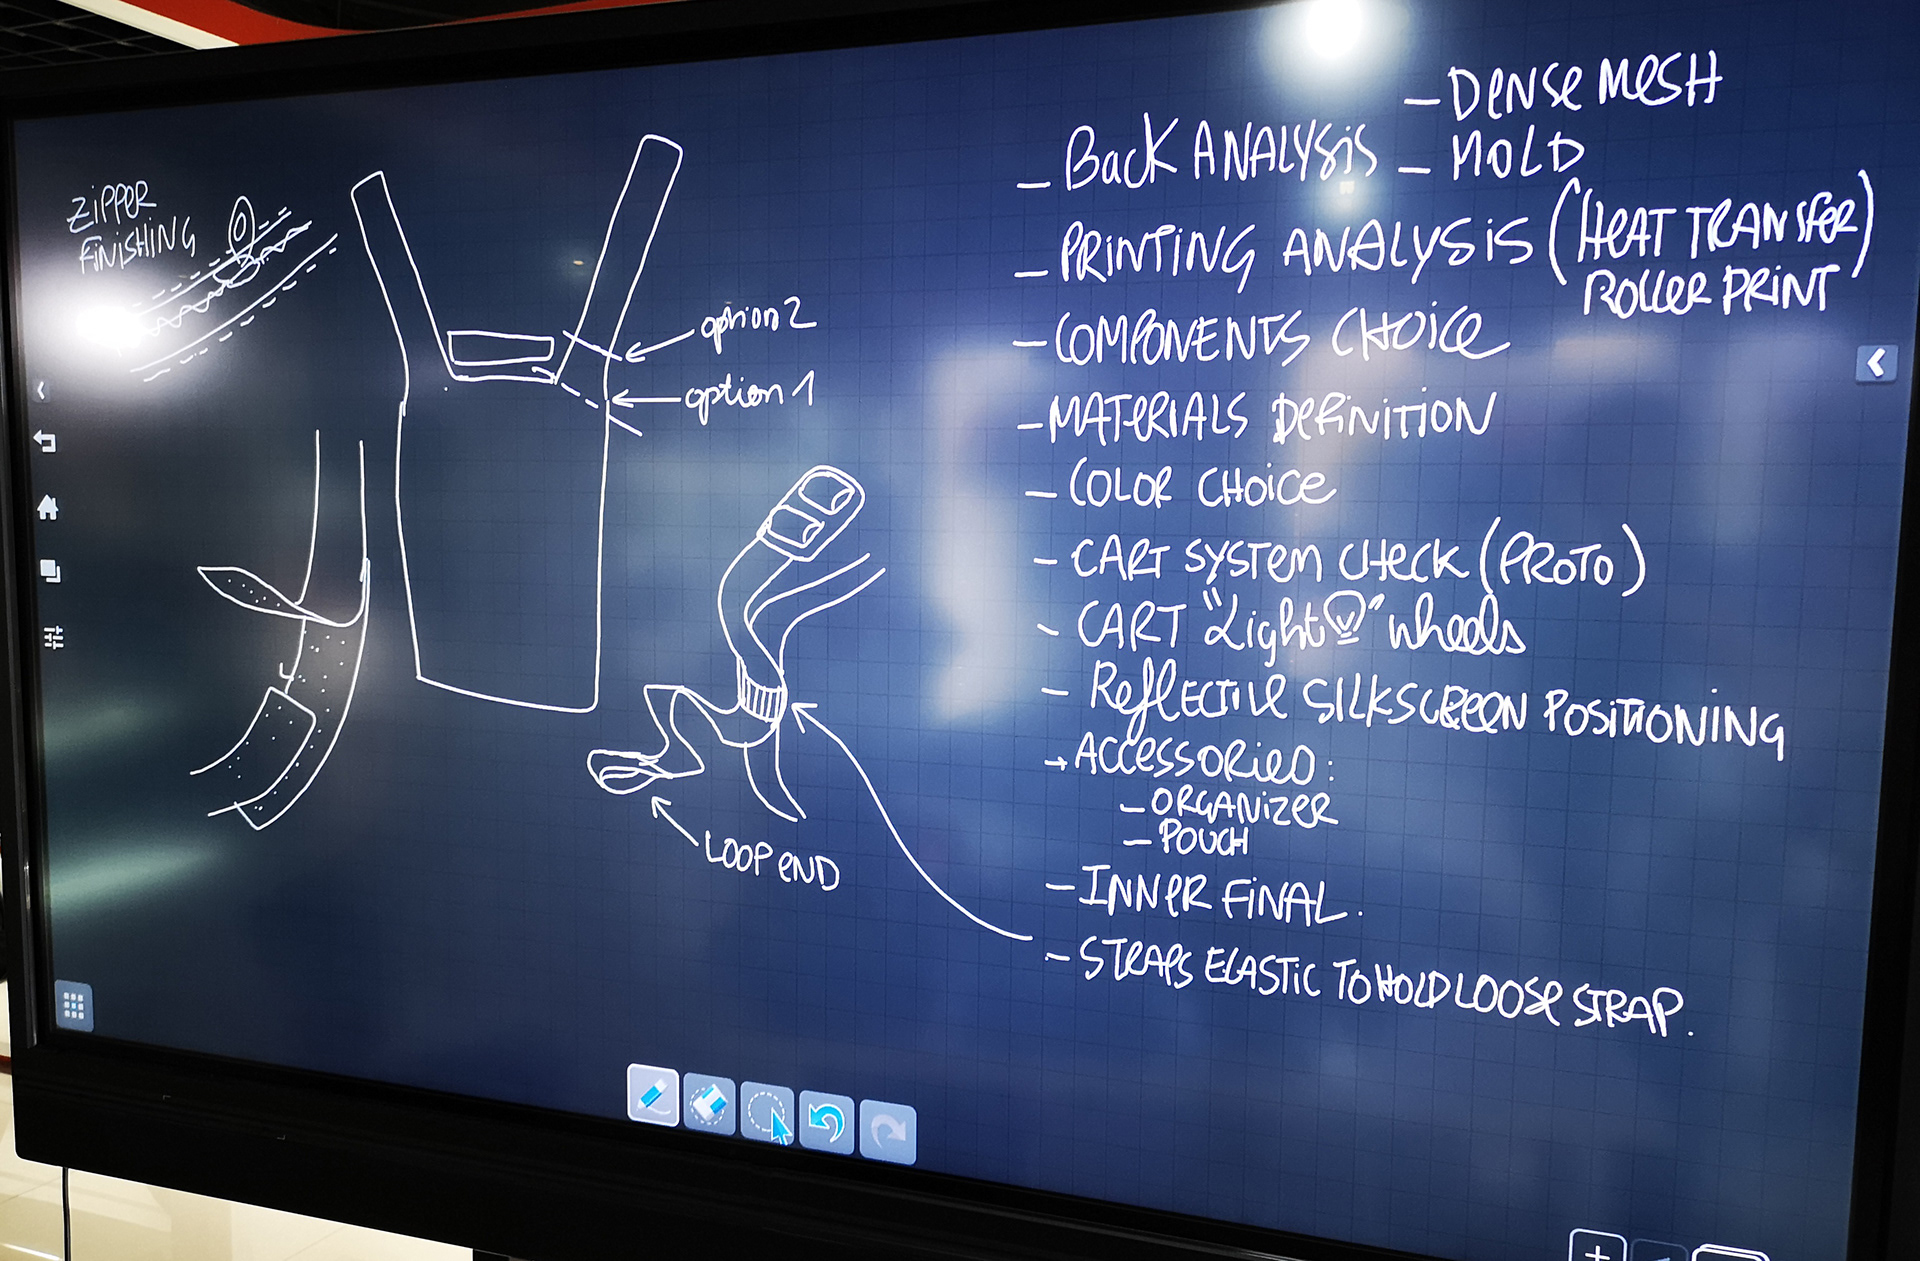 ZIPPER
FINISHING
option 2
option 1
LOOP END
– DENSE MESH
– BACK ANALYSIS – MOLD
– PRINTING ANALYSIS (HEAT TRANSFER)
ROLLER PRINT
– COMPONENTS CHOICE
– MATERIALS DEFINITION
– COLOR CHOICE
– CART SYSTEM CHECK (PROTO)
– CART "Light" wheels
– REFLECTIVE SILKSCREEN POSITIONING
→ ACCESSORIED:
– ORGANIZER
– POUCH
– INNER FINAL.
– STRAPS ELASTIC TO HOLD LOOSE STRAP.